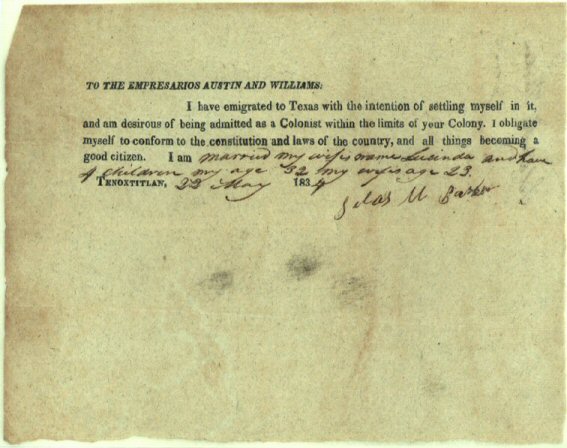 TO THE EMPRESARIOS AUSTIN AND WILLIAMS:
I have emigrated to Texas with the intention of settling myself in it,
and am desirous of being admitted as a Colonist within the limits of your Colony. I obligate
myself to conform to the constitution and laws of the country, and all things becoming a
good citizen. I am married my wifes name Lucinda and have
4 children my age 32 my wifes age 23.
TENOXTITLAN, 22 May 1834
Silas M Parker